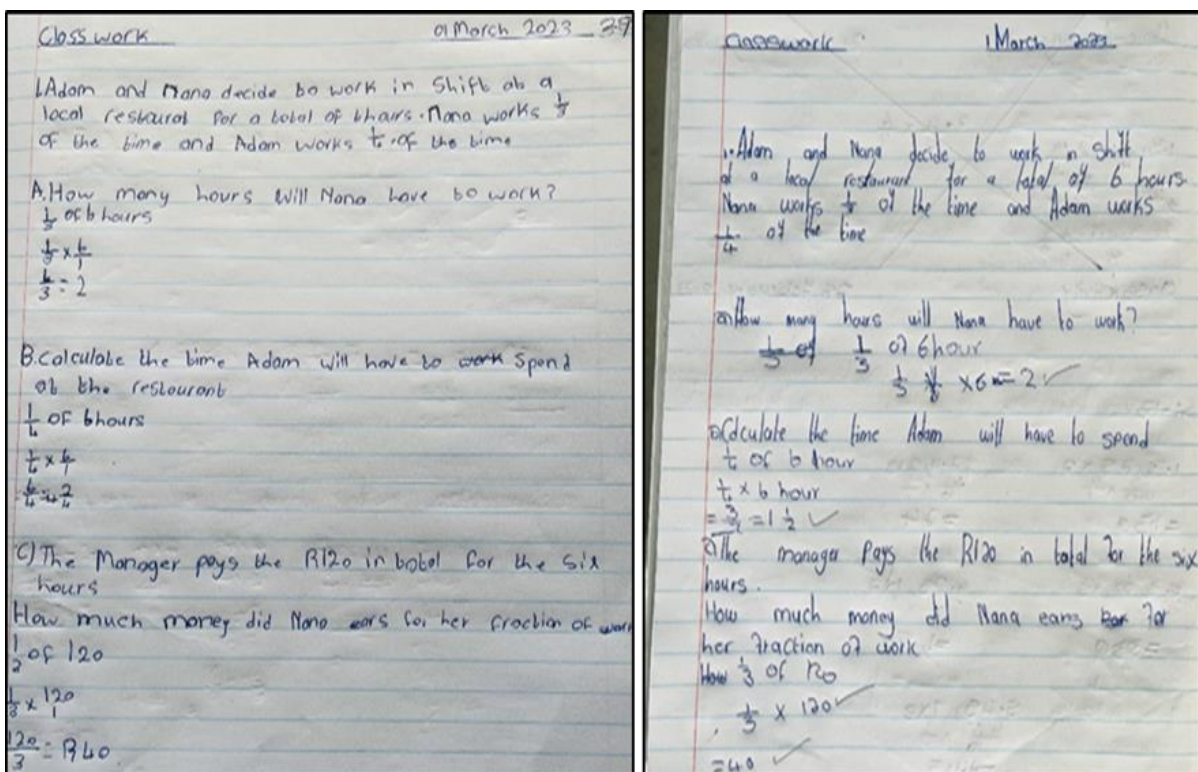 Class work 01 March 2023 39
1. Adam and Nana decide to work in Shift at a
local restaurat for a total of 6 hours. Nana works 1/3
of the time and Adam works 1/4 of the time
A. How many hours will Nana have to work?
1/3 of 6 hours
1/3 × 6/1
6/3 = 2
B. Calculate the time Adam will have to work Spend
at the restourant
1/4 OF 6 hours
1/4 × 6/1
C) The Manager pays the R120 in total for the six
hours
How much money did Nana ears for her fraction of work
1/2 of 120
1/3 × 120/1
120/3 = R40
Classwork 1 March 2023
1. Adam and Nana decide to work in Shift
at a local restaurant for a total of 6 hours.
Nana works of the time and Adam works
1/4 of the time
a) How many hours will Nana have to work?
1/3 of 1/3 of 6 hour
1/3 × 6 = 2
Calculate the time Adam will have to spend
1/4 of 6 hour
1/4 × 6 hour
= 1 1/2
The manager Pays the R120 in total for the six
hours.
How much money did Nana earns for
her fraction of work
How 1/3 of
1/3 × 120
=40